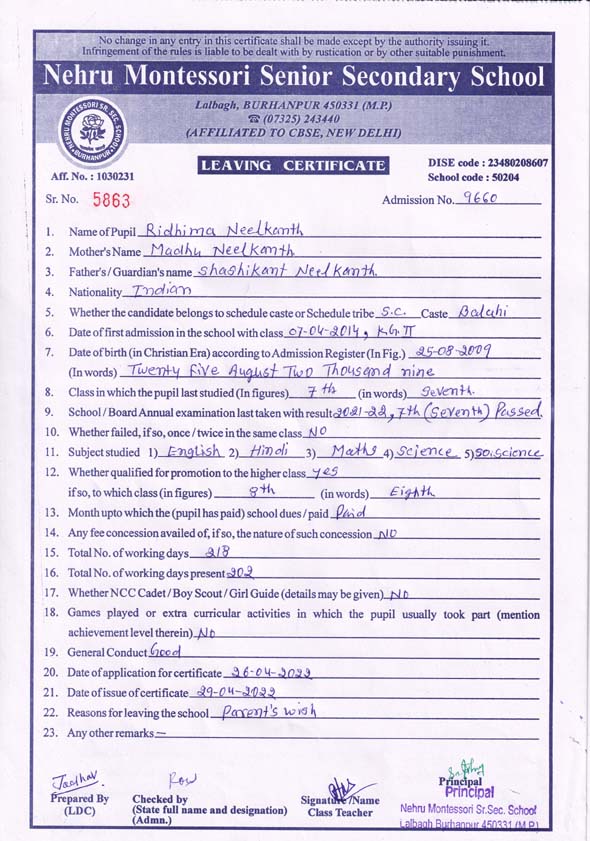 No change in any entry in this certificate shall be made except by the authority issuing it.
Infringement of the rules is liable to be dealt with by rustication or by other suitable punishment.
Nehru Montessori Senior Secondary School
Lalbagh, BURHANPUR 450331 (M.P.)
☎ (07325) 243440
(AFFILIATED TO CBSE, NEW DELHI)
NEHRU MONTESSORI SR. SEC. SCHOOL
BURHANPUR
LEAVING CERTIFICATE
DISE code : 23480208607
Aff. No. : 1030231
School code : 50204
Sr. No. 5863
Admission No. 9660
1. Name of Pupil Ridhima Neelkanth
2. Mother's Name Madhu Neelkanth
3. Father's / Guardian's name Shashikant Neelkanth
4. Nationality Indian
5. Whether the candidate belongs to schedule caste or Schedule tribe S.C. Caste Balahi
6. Date of first admission in the school with class 07-04-2014, KG II
7. Date of birth (in Christian Era) according to Admission Register (In Fig.) 25-08-2009
(In words) Twenty Five August Two Thousand nine
8. Class in which the pupil last studied (In figures) 7th (in words) Seventh.
9. School / Board Annual examination last taken with result 2021-22, 7th (Seventh) Passed.
10. Whether failed, if so, once / twice in the same class NO
11. Subject studied 1) English 2) Hindi 3) Maths 4) Science 5) SO.Science
12. Whether qualified for promotion to the higher class yes
if so, to which class (in figures) 8th (in words) Eighth
13. Month upto which the (pupil has paid) school dues / paid Paid
14. Any fee concession availed of, if so, the nature of such concession NO
15. Total No. of working days 218
16. Total No. of working days present 202
17. Whether NCC Cadet / Boy Scout / Girl Guide (details may be given) No
18. Games played or extra curricular activities in which the pupil usually took part (mention
achievement level therein) No
19. General Conduct Good
20. Date of application for certificate 26-04-2022
21. Date of issue of certificate 29-04-2022
22. Reasons for leaving the school Parent's wish
23. Any other remarks —
Prepared By
(LDC)
Checked by
(State full name and designation)
(Admn.)
Signature /Name
Class Teacher
Principal
Principal
Nehru Montessori Sr.Sec. School
Lalbagh Burhanpur 450331 (M.P.)